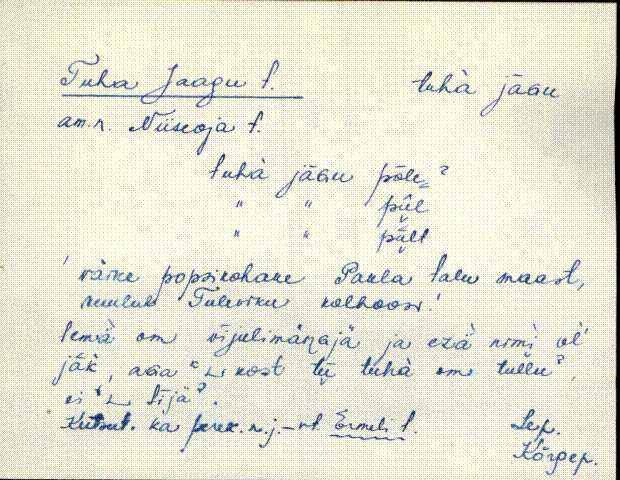 Tuha Jaagu t. tuhà jāgu
am.n. Niiseoja t.
tuhà jāgu pōle?
" " pǖl
" " pǟlt
' väike popsikohane Paula talu maast,
kuulub Tuleviku kolhoosi'
temä om vijulimängjä ja ezä nimi ol'
jāk, aga kost tu tuhà om tullu?
ei tijä?.
Kutsut. ka perek.n.j. – vt. Ermeli t.
Lep.
Kõrgep.